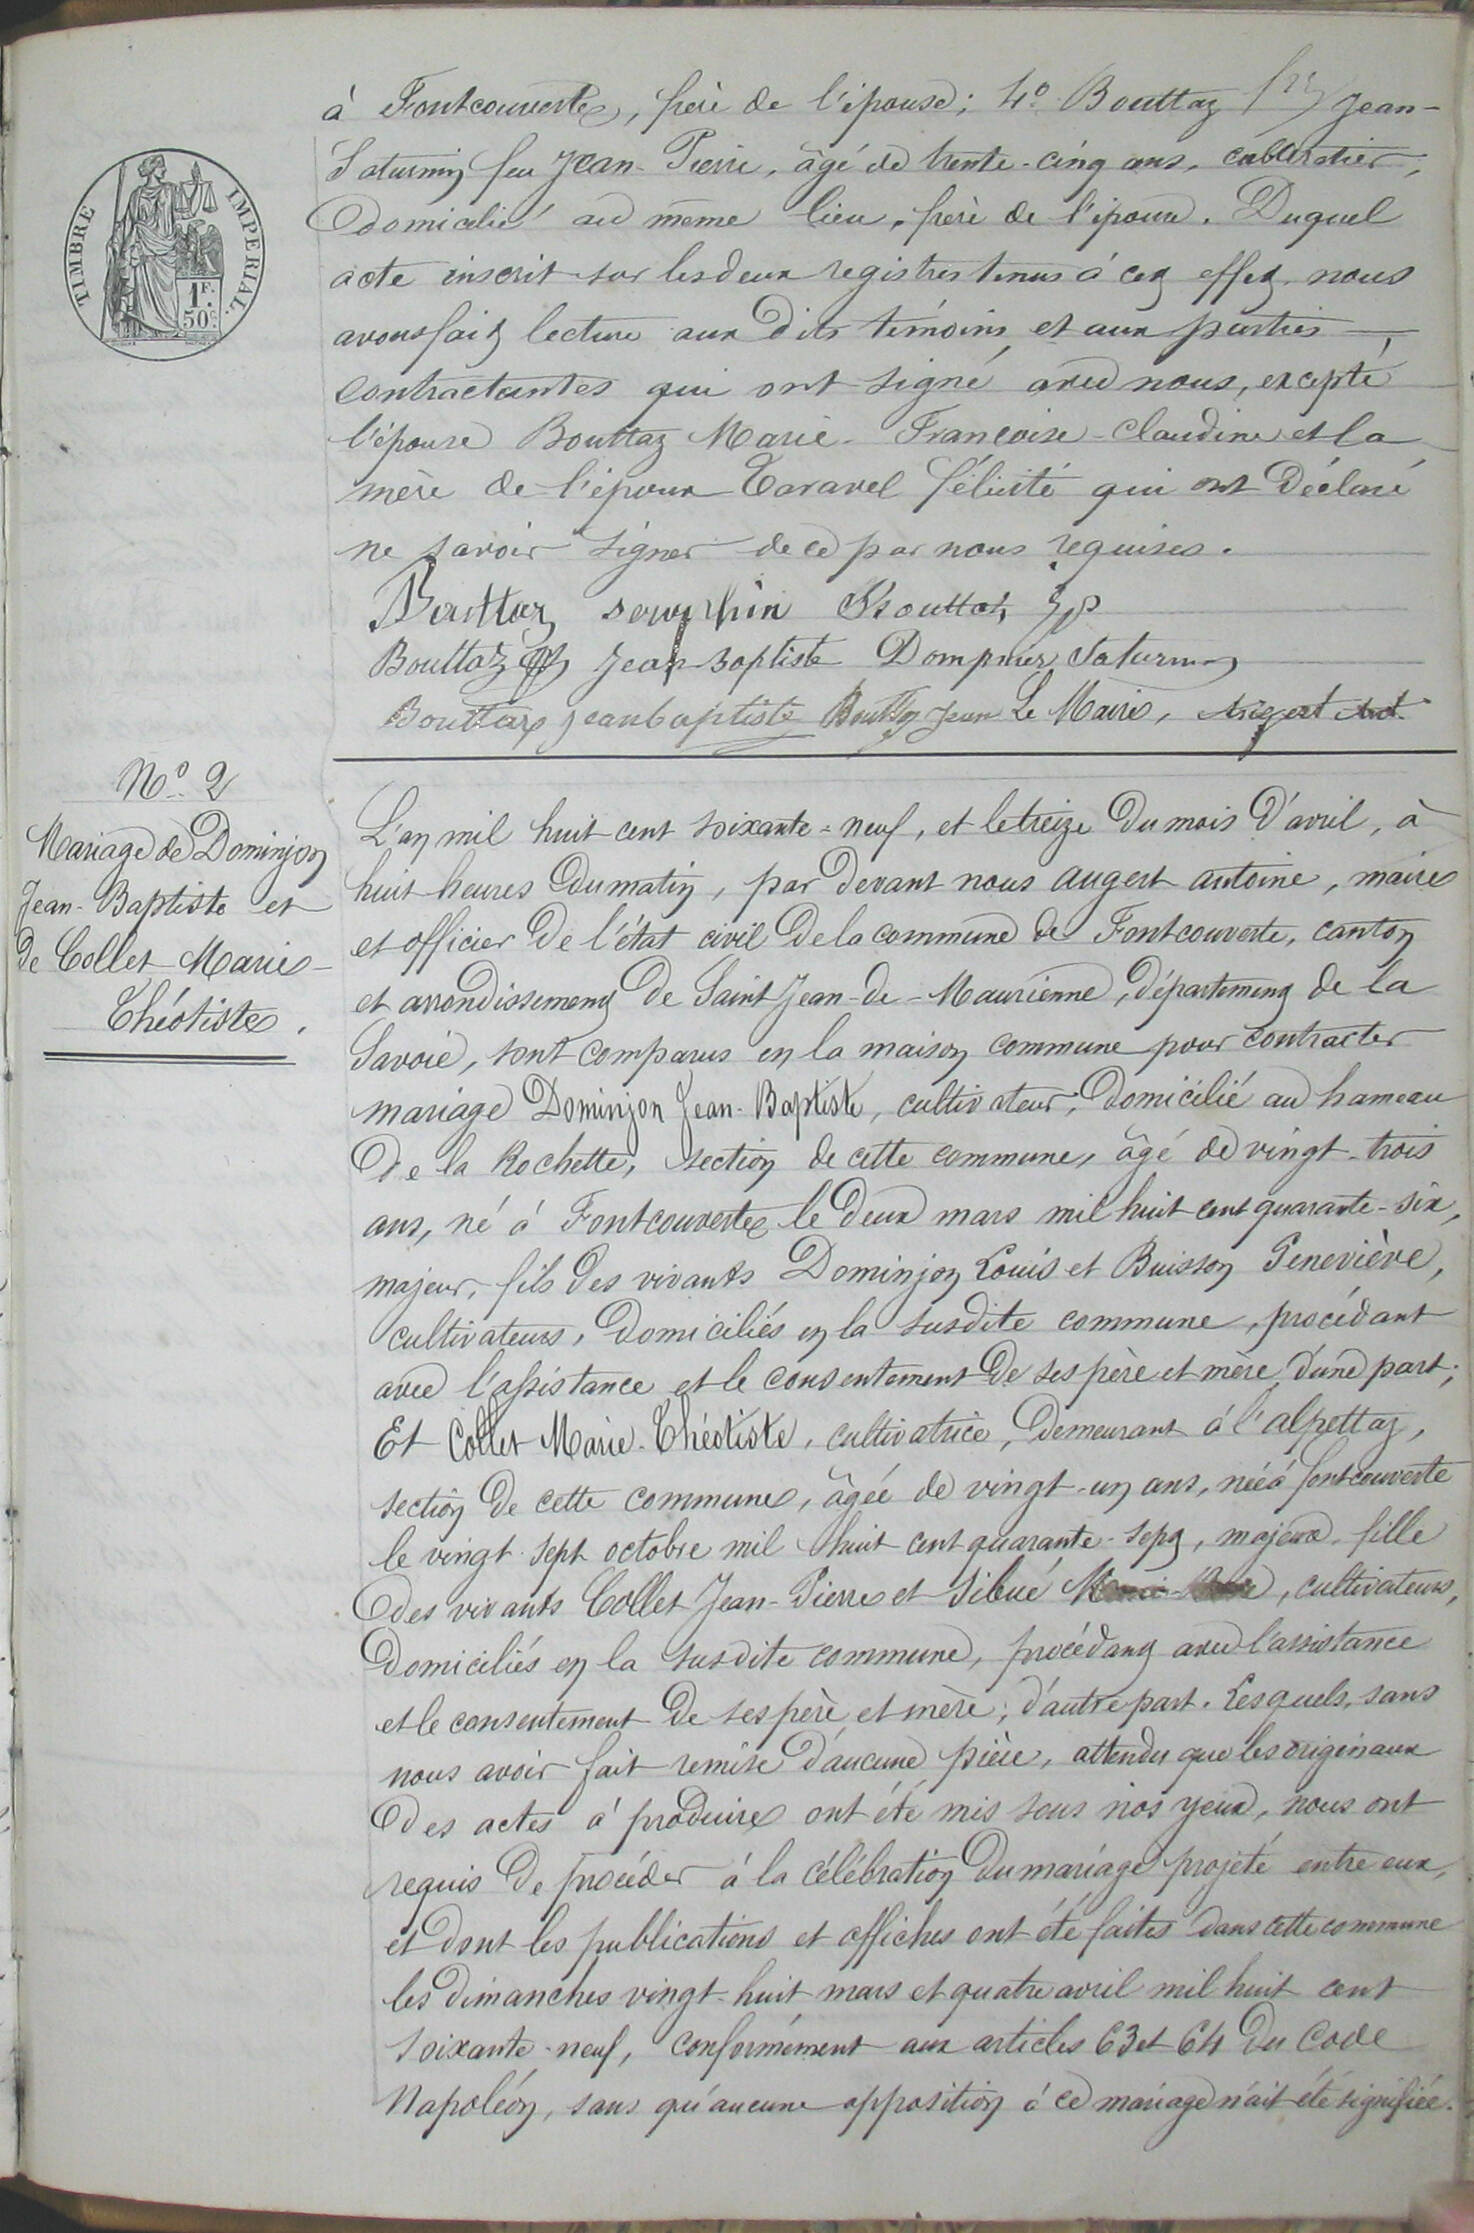 à Fontcouverte, frère de l'épouse; 4° Bouttaz Jean-
Saturnin feu Jean-Pierre, âgé de trente-cinq ans, cabaretier,
domicilié au même lieu, frère de l'épouse. Duquel
acte inscrit sur les deux registres tenus à cet effet, nous
avons fait lecture aux dits témoins et aux parties
contractantes qui ont signé avec nous, excepté
l'épouse Bouttaz Marie-Françoise-Claudine et la
mère de l'époux Taravel Félicité qui ont déclaré
ne savoir signer de ce par nous requises.
Bouttaz Bouttaz
Bouttaz Jean-Baptiste Dompnier Saturnin
Bouttaz jean baptiste Bouttaz Jean Le Maire, Augert Ant.
TIMBRE IMPERIAL
1F.
50c
N° 2
Mariage de Dominjon
Jean-Baptiste et
de Collet Marie-
Théotiste.
L'an mil huit cent soixante-neuf, et le treize du mois d'avril, à
huit heures du matin, par devant nous augert antoine, maire
et officier de l'état civil de la commune de Fontcouverte, canton
et arrondissement de Saint Jean-de-Maurienne, département de la
Savoie, sont comparus en la maison commune pour contracter
mariage Dominjon Jean-Baptiste, cultivateur, domicilié au hameau
de la Rochette, section de cette commune, âgé de vingt-trois
ans, né à Fontcouverte le deux mars mil huit cent quarante-six,
majeur, fils des vivants Dominjon Louis et Buisson Geneviève,
cultivateurs, domiciliés en la susdite commune, procédant
avec l'assistance et le consentement de ses père et mère, d'une part;
Et Collet Marie-Théotiste, cultivatrice, demeurant à l'alpettaz,
section de cette commune, âgée de vingt-un ans, née à fontcouverte
le vingt-sept octobre mil huit cent quarante-sept, majeure, fille
des vivants Collet Jean-Pierre et Sibué, cultivateurs,
domiciliés en la susdite commune, procédant avec l'assistance
et le consentement de ses père et mère, d'autre part. Lesquels, sans
nous avoir fait remise d'aucune pièce, attendu que les originaux
des actes à produire ont été mis sous nos yeux, nous ont
requis de procéder à la célébration du mariage projeté entre eux,
et dont les publications et affiches ont été faites dans cette commune
les dimanches vingt-huit mars et quatre avril mil huit cent
soixante-neuf, conformément aux articles 63 et 64 du Code
Napoléon, sans qu'aucune opposition à ce mariage n'ait été signifiée.